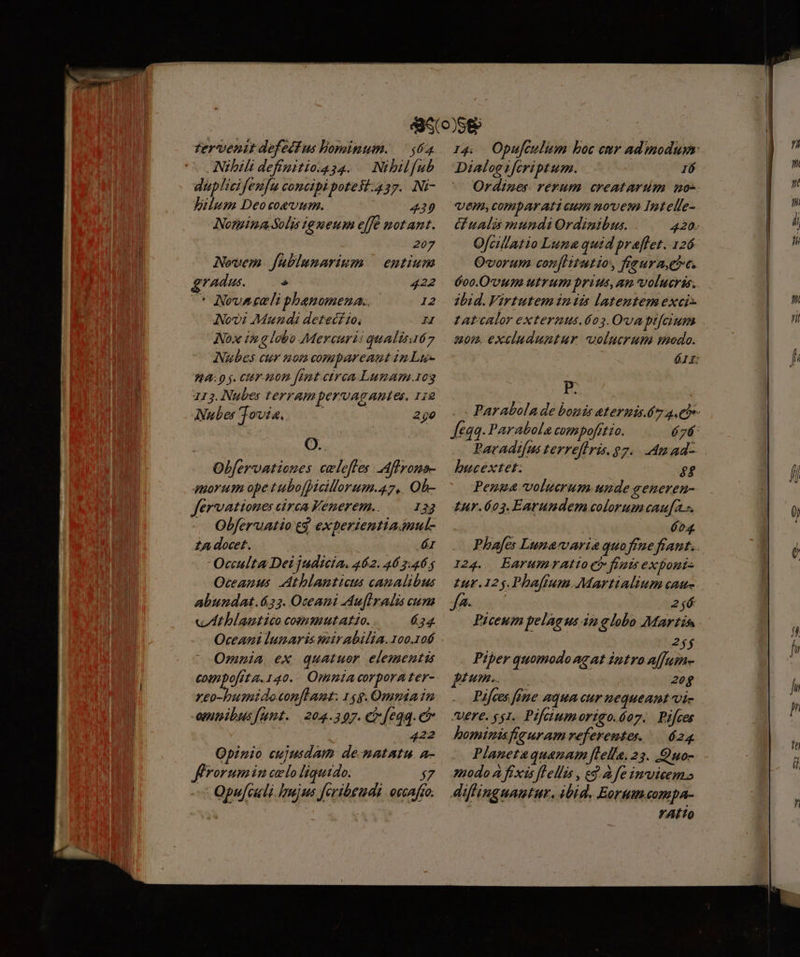 tervenit defectus hominum. 564
Nihili definitio. 434. Nihil sub
duplici sensu concipi potest. 437. Ni-
hilum Deo coævum. 439
Nomina Solis igneum esse notant.
207
Novem sublunarium entium
gradus. 422
Nova cæli phænomena. 12
Novi Mundi detectio, II
Nox in globo Mercurii qualis. 167
Nubes cur non compareant in Lu-
na. 95. cur non sint circa Lunam. 103
113. Nubes terram pervagantes. 112
Nubes Jovia. 290
O.
Observationes cælestes Astrono-
morum ope tubospicillorum. 47. Ob-
servationes circa Venerem. 133
Observatio & experientia mul-
ta docet. 61
Occulta Dei judicia. 462. 463. 465
Oceanus Athlanticus canalibus
abundat. 633. Oceani Australis cum
Athlantico commutatio. 634
Oceani lunaris mirabilia. 100. 106
Omnia ex quatuor elementis
composita. 140. Omnia corpora ter-
reo-humido constant. 158. Omnia in
omnibus sunt. 204. 397. & seqq. &
422
Opinio cujusdam de natatu a-
strorum in cælo liquido. 57
Opusculi hujus scribendi occasio.
14. Opusculum hoc cur ad modum
Dialogi scriptum. 16
Ordines rerum creatarum no-
vem, comparati cum novem Intelle-
ctualis mundi Ordinibus. 420.
Oscillatio Lunæ quid præstet. 126
Ovorum constitutio, figura, &c.
600. Ovum utrum prius, an volucris.
ibid. Virtutem in iis latentem exci-
tat calor externus. 603. Ova piscium
non excluduntur volucrum modo.
611.
P.
Parabola de bonis æternis. 674. &
seqq. Parabolæ compositio. 676
Paradisus terrestris. 87. An ad-
huc extet. 88
Pennæ volucrum unde generen-
tur. 603. Earundem colorum causa.
604
Phases Lunæ variæ quo fine fiant.
124. Earum ratio & finis exponi-
tur. 125. Phasium Martialium cau-
sa. 256
Piceum pelagus in globo Martis
255
Piper quomodo agat intro assum-
ptum. 208
Pisces sine aqua cur nequeant vi-
vere. 551. Piscium origo. 607. Pisces
hominis figuram referentes. 624
Planeta quænam stella. 23. Quo-
modo à fixis stellis, & à se invicem
distinguantur. ibid. Eorum compa-
ratio